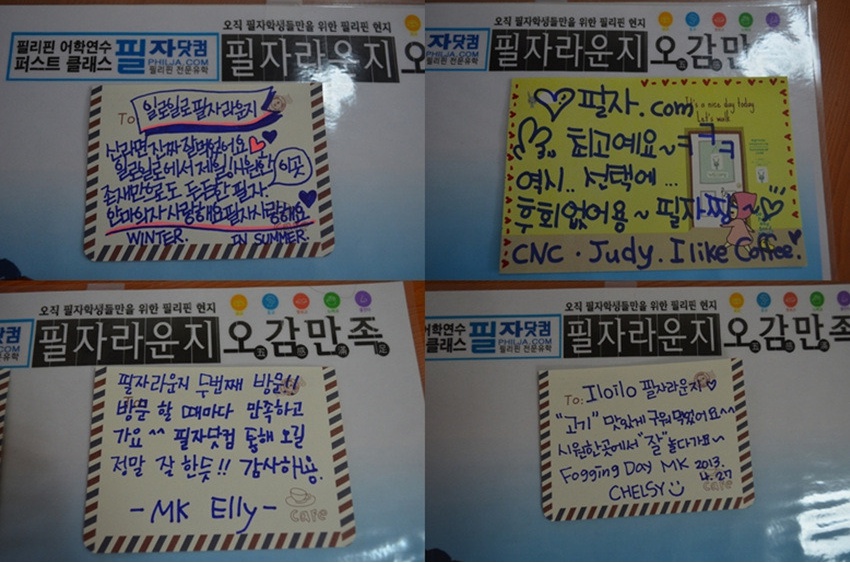 오직 필자학생들만을 위한 필리핀 현지
필리핀 어학연수 필자닷컴 필자라운지 오
퍼스트 클래스 PHILJA.COM
필리핀 전문유학
To 일로일로필자라운지
신라면 진짜 잘먹었어요
일로일로에서 제일!시원한 이곳
존재만으로도 든든한 필자.
안마의자 사랑해요 필자사랑해요
WINTER. IN SUMMER.
오직 필자학생들만을 위한 필리핀 현지
자닷컴 필자라운지 오감만
PHILJA.COM
필리핀 전문유학
It's a nice day today
Let's walk
필자.com
최고예요~ㅋㅋㅋ
역시.. 선택에...
후회없어용~ 필자짱~
CNC · Judy. I like Coffee.
오직 필자학생들만을 위한 필리핀 현지
닷컴 필자라운지 오감만족
A.COM
전문유학
필자라운지 두번째 방문!!
방문 할 때마다 만족하고
가요^^ 필자닷컴 통해 오길
정말 잘한듯!! 감사해용.
- MK Elly -
cafe
오직 필자학생들만을 위한 필리핀 현지
어학연수 필자닷컴 필자라운지 오감만
클래스 PHILJA.COM
필리핀 전문유학
To: Iloilo 필자라운지♡
"고기" 맛있게 구워먹었어요^^
시원한곳에서 "잘" 놀다가요~
Fogging Day MK 2013.
4.27
CHELSY
cafe